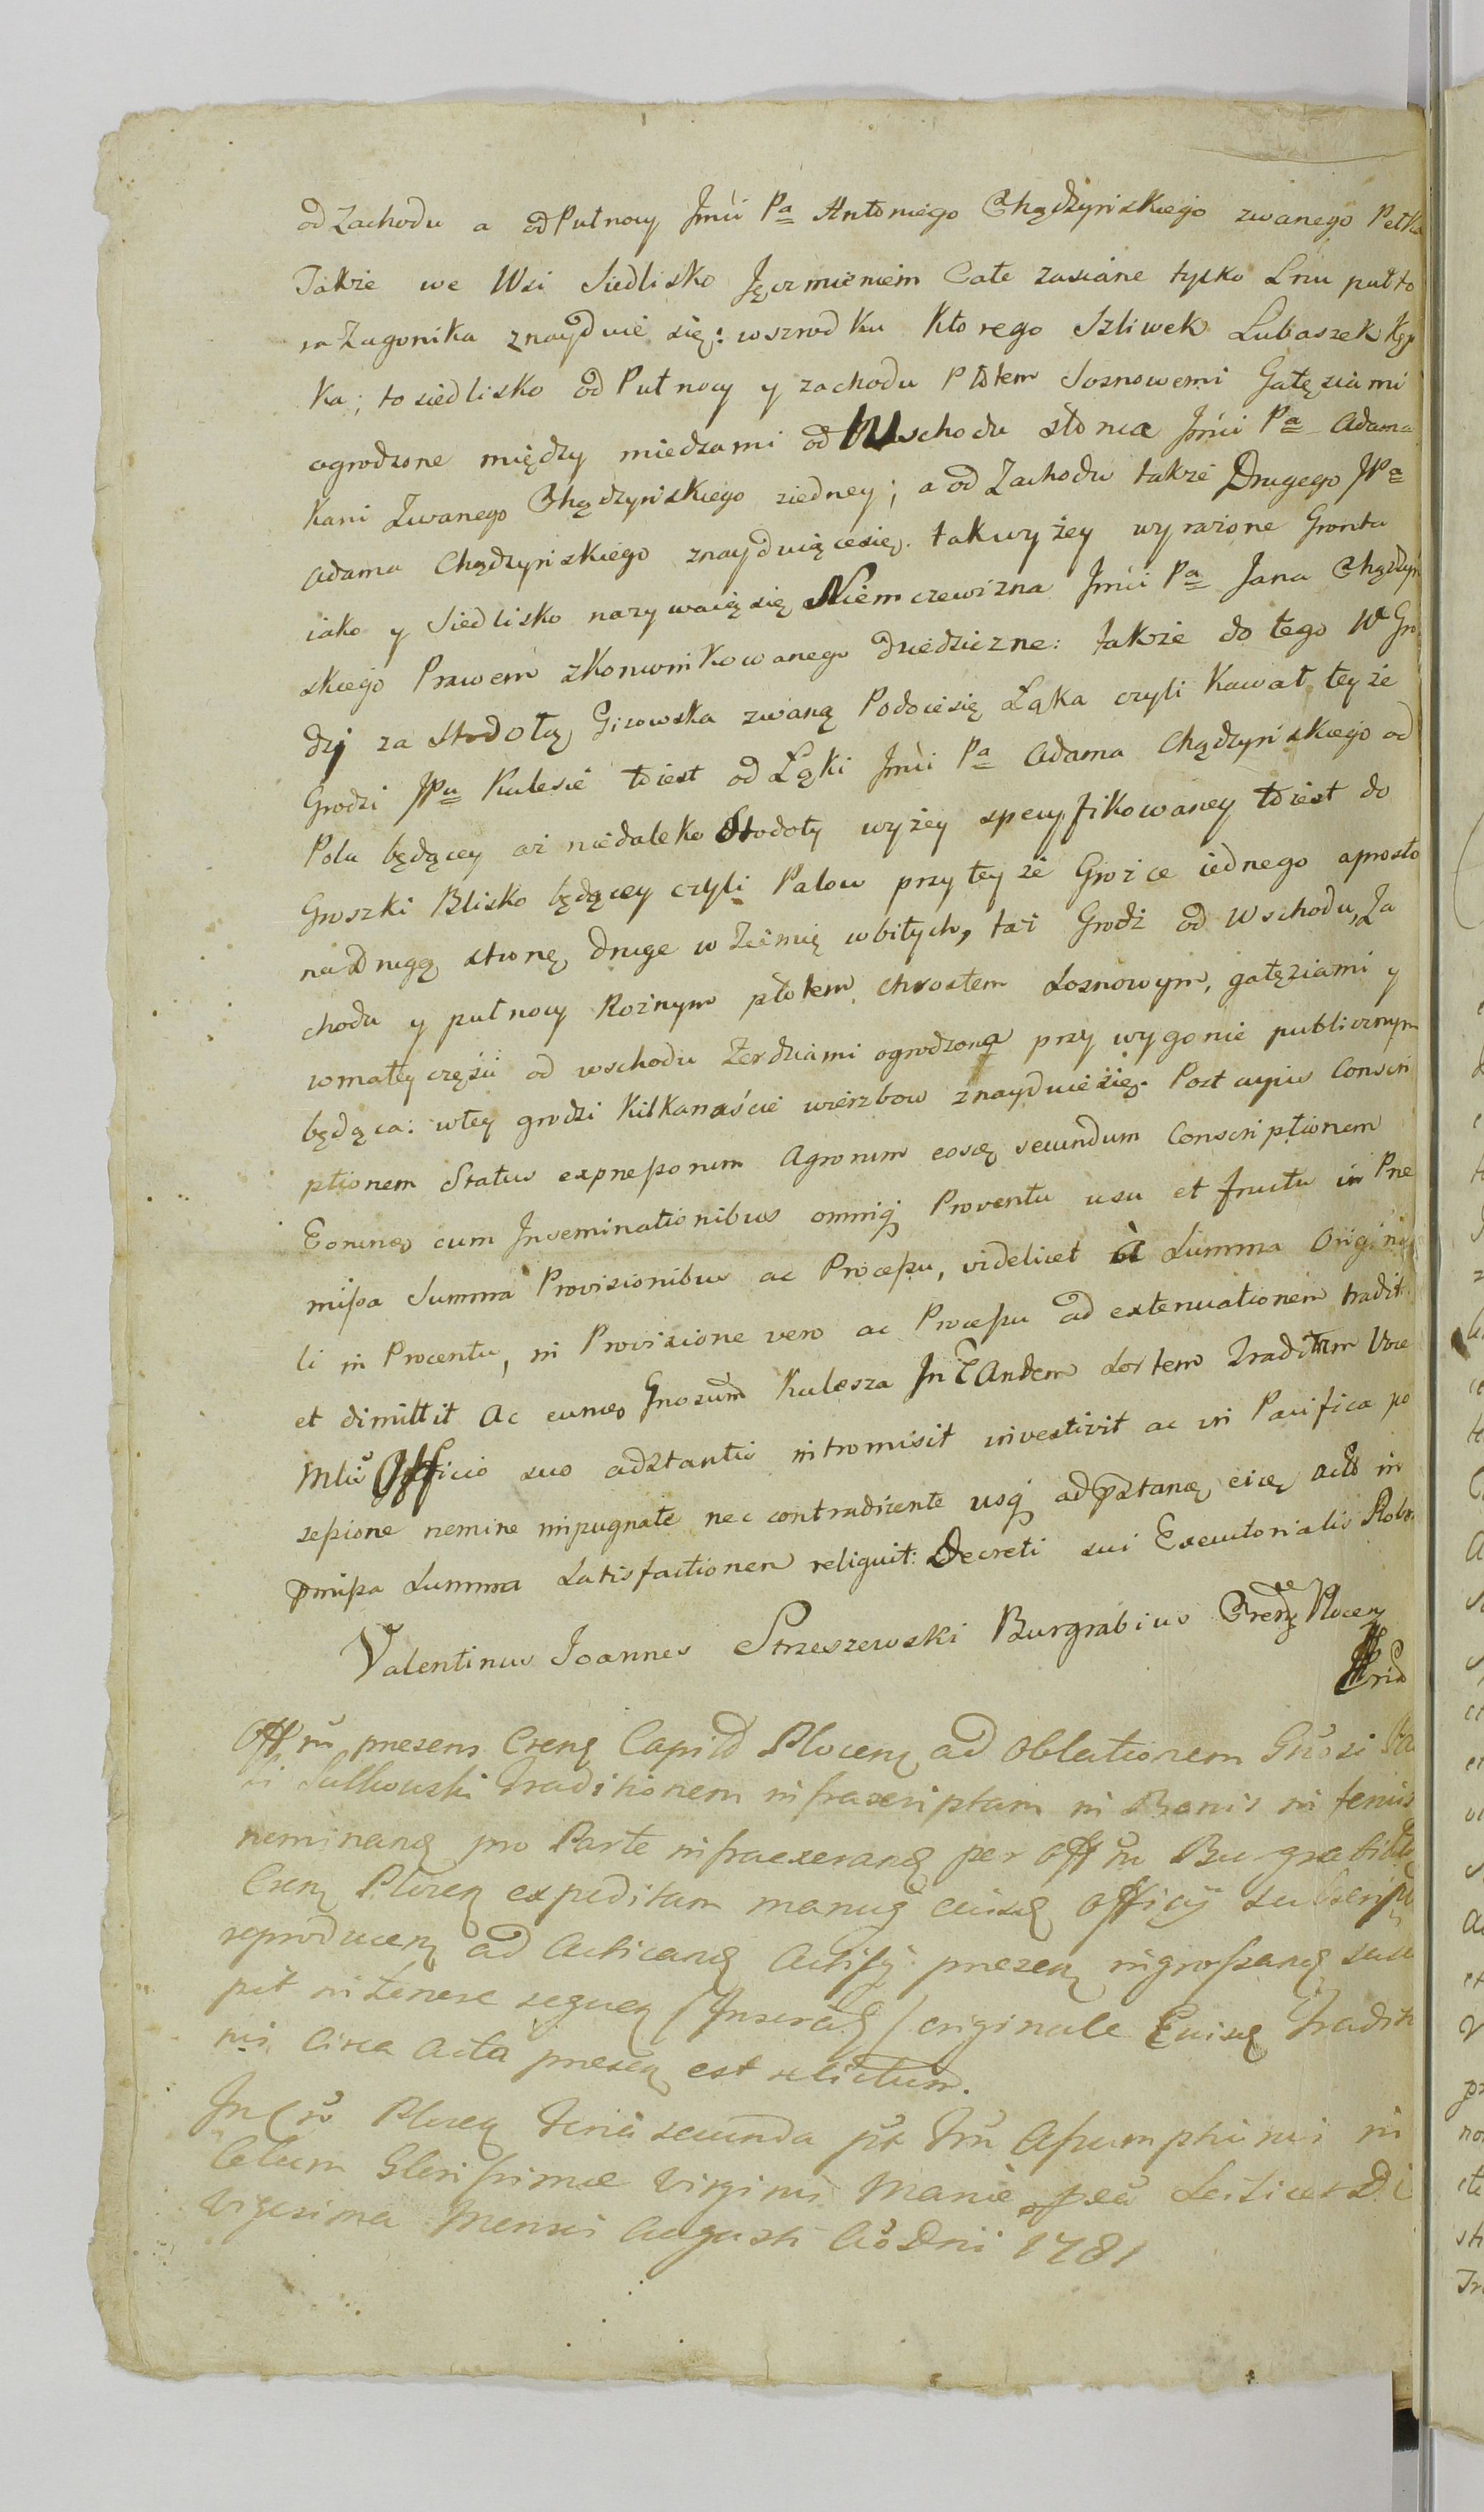 od Zachodu a od Pułnocy Jmći Pa Antoniego Chądzyńskiego zwanego Petka
Takze we Wsi Siedlisko Jęczmieniem Całe zasiane tylko Lnu pułto
ra Zagonika znayduie się: wszrodku Ktorego Szliwek Lubaszek Kęp
ka; to siedlisko od Pułnocy y zachodu Płotem Sosnowemi Gałęziami
ogrodzone między miedzami od Wschodu słonca Jmći Pa Adama
Kani Zwanego Chądzyńskiego ziedney; a od Zachodu takze Drugego JPa
Adama Chądzyńskiego znayduiącesię. tak wyżey wyrażone Gronta
iako y Siedlisko nazywaią się Niemczewizna Jmći Pa Jana Chądzyń
skiego Prawem zKonwinkowanego dziedziczne: takze do tego W Gro
dzi za Stodołą Gizowska zwaną Podociesię Łąka czyli Kawał teyże
Grodzi JPu Kulesie to iest od Łąki Jmći Pa Adama Chądzyńskiego od
Pola będącey aż niedaleko Stodoły wyżey specyfikowaney to iest do
Gruszki Blisko będącey czyli Palow przy teyże Grożce iednego aprosto
na Drugą stronę druge w Ziemię wbitych, taż Grodź od Wschodu, Za
chodu y pułnocy Rożnym płotem chrostem Sosnowym, gałęziami y
w małey części od wschodu Zerdziami ogrodzona przy wygonie publicznym
będąca: wtey grodzi Kilkanaście wierzbow znayduie się. Post cujus Conscri
ptionem Status expressorum Agrorum eosq secundum Conscriptionem
Eorum cum Inseminationibus omniq Proventu usu et fructu in Pre
missa Summa Provisionibus ac Processu, videlicet à Summa Origina
li in Procentu, in Provisione vero ac Processu ad extenuationem tradit
et dimittit Ac eum Gnosum Kulesza In Eandem Sortem Traditam Voce
Mlis Officio suo adstantis intromisit investivit ac in Pacifica po
sessione nemine impugnate nec contradicente usq ad pstanã eicq acto in
pmissa Summa Satisfactionem reliquit: Decreti sui Executorialis Robore
Valentinus Joannes Strzeszewski Burgrabius Cren Plocen

Officiũ presens Cren Capita Plocen ad Oblationem Gnosi
Sulkowski Traditionem infrascriptam in Bonis in ferius
nominan pro Parte infraexeran per Offũ Burgrabia
Cren Plocen expeditam manuq eiusd Officij subscrip
reproducen ad Acticand Actisq presen ingrossand susce
pit in tenore sequen (Inserat) originale Cuius Tradit
nis circa Acta presen est relictum.
In C Plocen Feria secunda pt Ftũ Assumptionis in
Celum Glorissimae Virginis Mariae seu Scilicet Di
Vigesima Mensis Augusti Ao Dni 1781